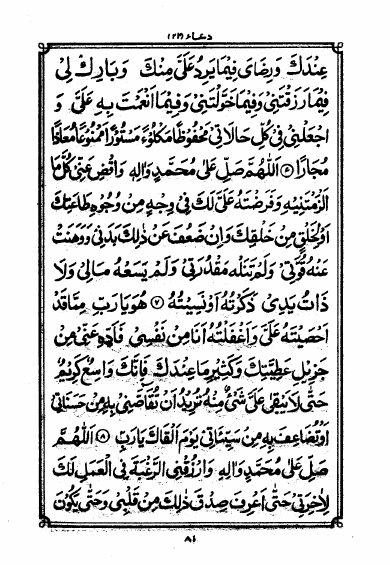 دعاء (٢٢)
عِنْدَكَ وَرِضَايَ فِيْمَا يَرِدُ عَلَيَّ مِنْكَ وَبَارِكْ لِيْ
فِيْمَا رَزَقْتَنِيْ وَفِيْمَا خَوَّلْتَنِيْ وَفِيْمَا اَنْعَمْتَ بِهِ عَلَيَّ وَ
اجْعَلْنِيْ فِيْ كُلِّ حَالَاتِيْ مَحْفُوْظًا مَكْلُوْءًا مَسْتُوْرًا مَمْنُوْعًا مُعَاذًا
مُجَارًا ۞ اَللّٰهُمَّ صَلِّ عَلٰى مُحَمَّدٍ وَاٰلِهٖ وَاقْضِ عَنِّيْ كُلَّ مَا
اَلْزَمْتَنِيْهِ وَفَرَضْتَهُ عَلَيَّ لَكَ فِيْ وَجْهٍ مِنْ وُجُوْهِ طَاعَتِكَ
اَوْ لِخَلْقٍ مِنْ خَلْقِكَ وَاِنْ ضَعُفَ عَنْ ذٰلِكَ بَدَنِيْ وَوَهَنَتْ
عَنْهُ قُوَّتِيْ وَلَمْ تَنَلْهُ مَقْدُرَتِيْ وَلَمْ يَسَعْهُ مَالِيْ وَلَا
ذَاتُ يَدِيْ ذَكَرْتُهُ اَوْ نَسِيْتُهُ ۷ هُوَ يَا رَبِّ مِمَّا قَدْ
اَحْصَيْتَهُ عَلَيَّ وَاَغْفَلْتُهُ اَنَا مِنْ نَفْسِيْ فَاَدِّهِ عَنِّيْ مِنْ
جَزِيْلِ عَطِيَّتِكَ وَكَثِيْرِ مَا عِنْدَكَ فَاِنَّكَ وَاسِعٌ كَرِيْمٌ
حَتّٰى لَا يَبْقٰى عَلَيَّ شَيْءٌ مِنْهُ تُرِيْدُ اَنْ تُقَاصَّنِيْ بِهِ مِنْ حَسَنَاتِيْ
اَوْ تُضَاعِفَ بِهِ مِنْ سَيِّئَاتِيْ يَوْمَ اَلْقَاكَ يَا رَبِّ ۸ اَللّٰهُمَّ
صَلِّ عَلٰى مُحَمَّدٍ وَاٰلِهٖ وَارْزُقْنِي الرَّغْبَةَ فِي الْعَمَلِ لَكَ
لِاٰخِرَتِيْ حَتّٰى اَعْرِفَ صِدْقَ ذٰلِكَ مِنْ قَلْبِيْ وَحَتّٰى يَكُوْنَ
۸۱